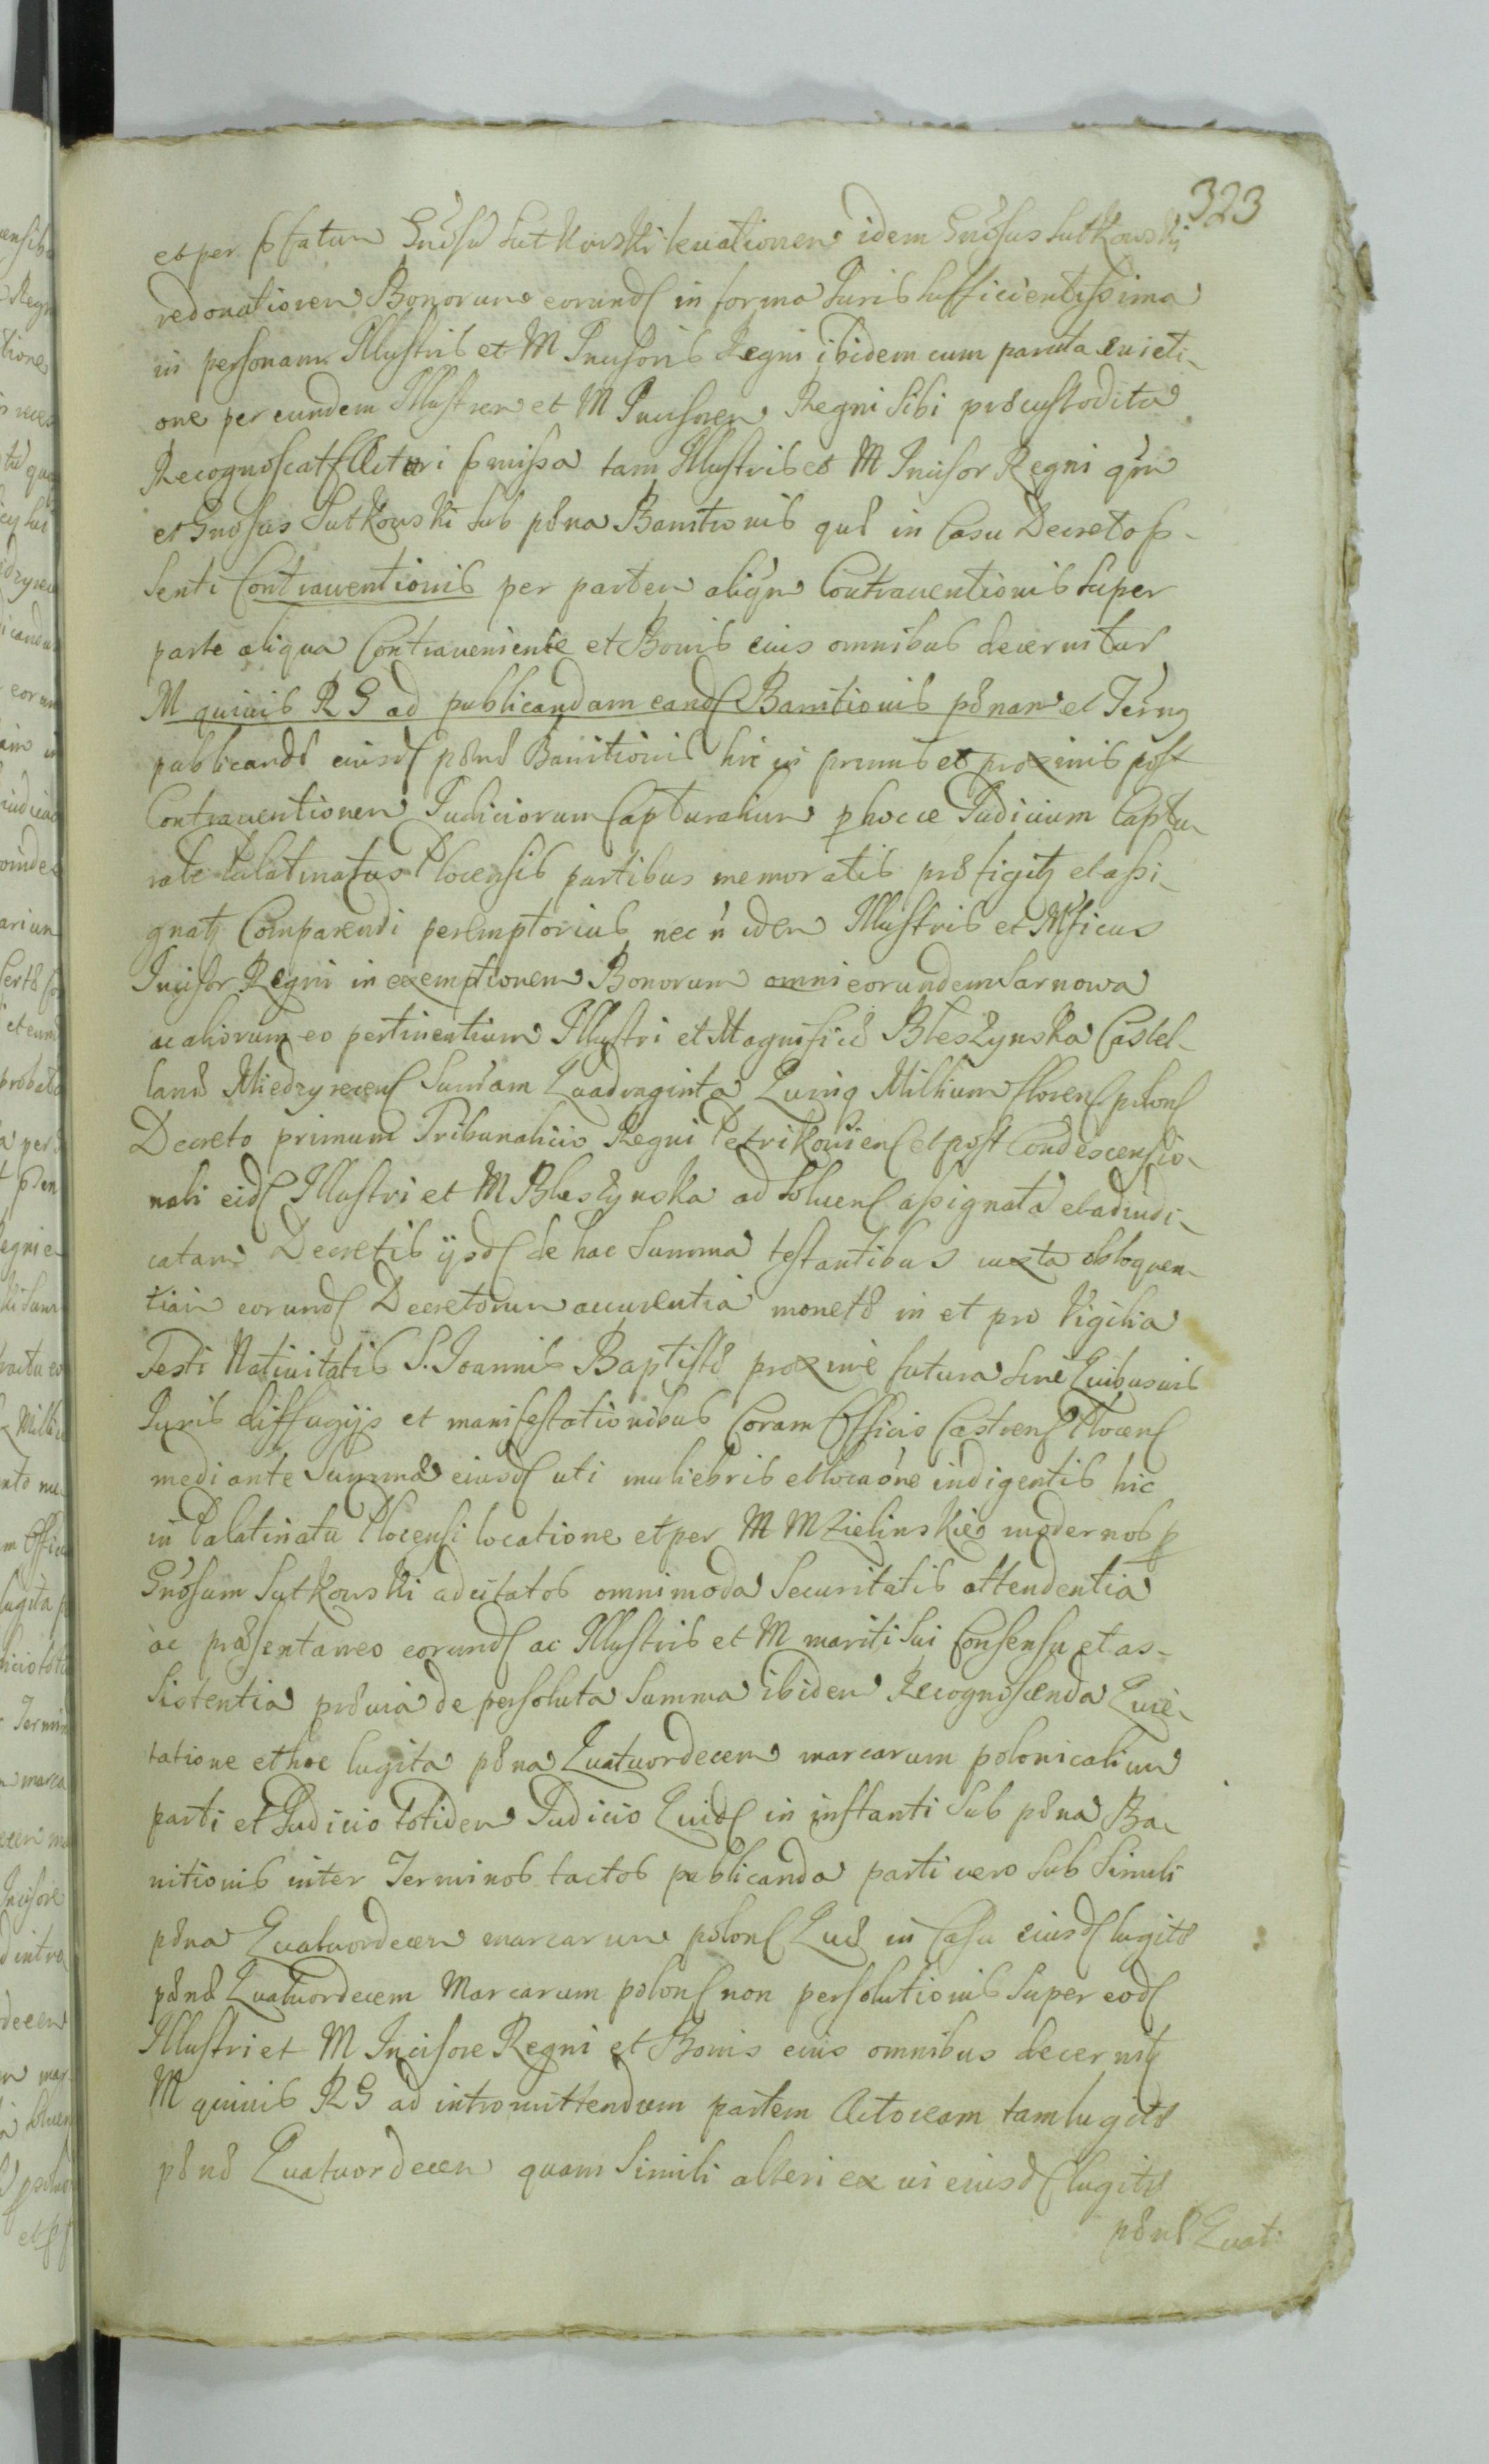 323
et per ꝑfatum Gnosu Sutkowski levationem idem Gnosus Sutkowski
redonationem Bonorum eorund in forma Iuris sufficientissima
in personam Illustris et M Incisoris Regni ibidem cum paruta evicti-
one per eundem Illustrem et M Incisorem Regni sibi præcustodita
Recognoscat satisfacturi pmissa tam Illustris et M Incisor Regni qm
et Gnosus Sutkowski sub pæna Banitionis quæ in Casu Decreto p-
senti Contraventionis per partem aliqm Contraventionis super
parte aliqua Contraveniente et Bonis eius omnibus decernitur
M quivis R G ad publicandam eand Banitionis pænam et Ternus
publicandæ eiusd pænæ Banitionis hic in primis et proximis post
Contraventionem Iudiciorum Capturalium p hocce Iudicium Captu-
rale Palatinatus Plocensis partibus memoratis præfigitz et assi-
gnatz Comparendi peremptorius nec n idem Illustris et Mficus
Incisor Regni in exemptionem Bonorum omni eorundem Sarnowa
ac aliorum eo pertinentium Illustri et Magnificæ Bleszynska Castel-
lanæ Miedzyrecen Sumam Quadraginta Quinq Millium floren polon
Decreto primum Tribunalicio Regni Petrikovien et post Condescensio-
nali eid Illustri et M Bleszynska ad solven assignata et adiudi-
catam Decretis ijsd de hac Summa testantibus iuxta obloquen-
tiam eorund Decretorum accurentia monetæ in et pro Vigilia
Festi Nativitatis S. Ioannis Baptistæ proxime futura sine Quibusvis
Iuris diffugijs et manifestationibus Coram Officio Castren Plocen
mediante Summæ eiusd uti muliebris et locaone indigentis hic
in Palatinatu Plocensi locatione et per M M Zielinskie modernos p
Gnosum Sutkowski adcitatos omnimoda Securitatis attendentia
ac præsentaneo eorund ac Illustris et M mariti sui Consensu et as-
sistentia prævia de persoluta Summa ibidem Recognoscenda Quie-
tatione et hoc lugita pæna Quatuordecem marcarum polonicalium
parti et Iudicio totidem Iudicio Quid in instanti sub pæna Ba-
nitionis inter Terminos tactos publicanda parti vero sub simili
pæna Quatuordecem marcarum polon Quæ in Casu eiusd lugitæ
pænæ Quatuordecem Marcarum polon non persolutionis super eod
Illustri et M Incisore Regni et Bonis eius omnibus decernitz
M quivis R G ad intromittendum partem Actoream tam lugitæ
pænæ Quatuordecem quam simili alteri ex vi eiusd lugitæ
pænæ Quat: